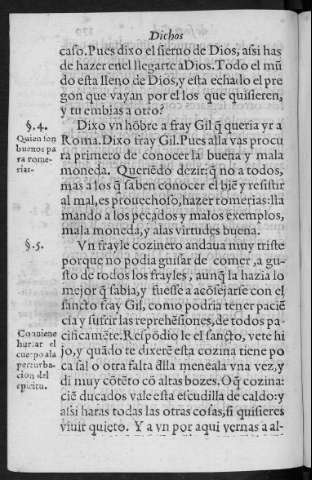 Dichos
caso. Pues dixo el sieruo de Dios, assi has
de hazer enel llegarte a Dios. Todo el mũ
do esta lleno de Dios, y esta echado el pre
gon que vayan por el los que quisieren,
y tu embias a otro?
§. 4.
Quien son
buenos pa
ra rome-
rias.
Dixo vn hõbre a fray Gil q̃ queria yr a
Roma. Dixo fray Gil. Pues alla vas procu
ra primero de conocer la buena y mala
moneda. Queriẽdo dezir: q̃ no a todos,
mas a los q̃ saben conocer el biẽ y resistir
al mal, es prouechoso, hazer romerias: lla
mando a los pecados y malos exemplos,
mala moneda, y alas virtudes buena.
§. 5.
Vn frayle cozinero andaua muy triste
porque no podia guisar de comer, a gu-
sto de todos los frayles, aunq̃ la hazia lo
mejor q̃ sabia, y fuesse a acõsejarse con el
sancto fray Gil, como podria tener paciẽ
cia y sufrir las reprehẽsiones, de todos pa-
cificamẽte. Respõdio le el sancto, vete hi
jo, y quãdo te dixerẽ esta cozina tiene po
ca sal o otra falta dlla meneala vna vez, y
di muy cõtẽto cõ altas bozes. O q̃ cozina:
ciẽ ducados vale esta escudilla de caldo: y
assi haras todas las otras cosas, si quisieres
viuir quieto. Y a vn por aqui vernas a al-
Conuiene
hurtar el
cuerpo ala
perturba-
cion del
espiritu.